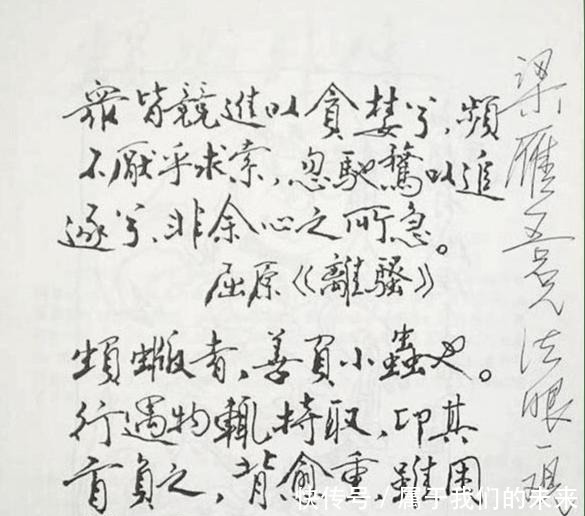 眾皆競進以貪婪兮,頻
不厭乎求索,忽馳騖以追
逐兮,非余心之所急。
屈原《離騷》
蝜蝂者,善負小蟲也。
行遇物輒持取,卬其
首負之,背愈重,雖困
梁雁吾兄法眼一
快传号/属于我们的未来